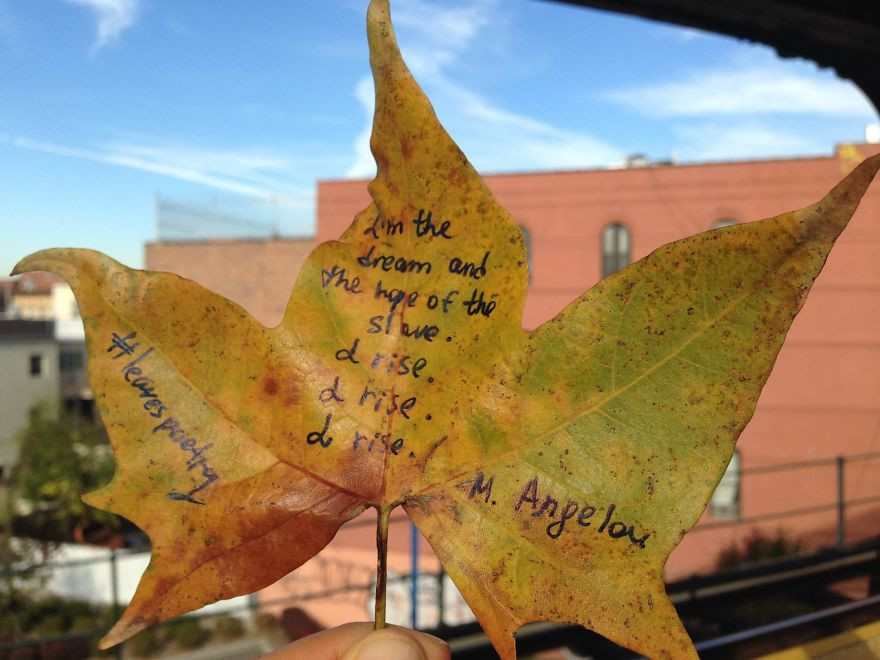 I'm the
dream and
the hope of the
slave.
I rise.
I rise.
I rise.
M. Angelou
#leavespoetry